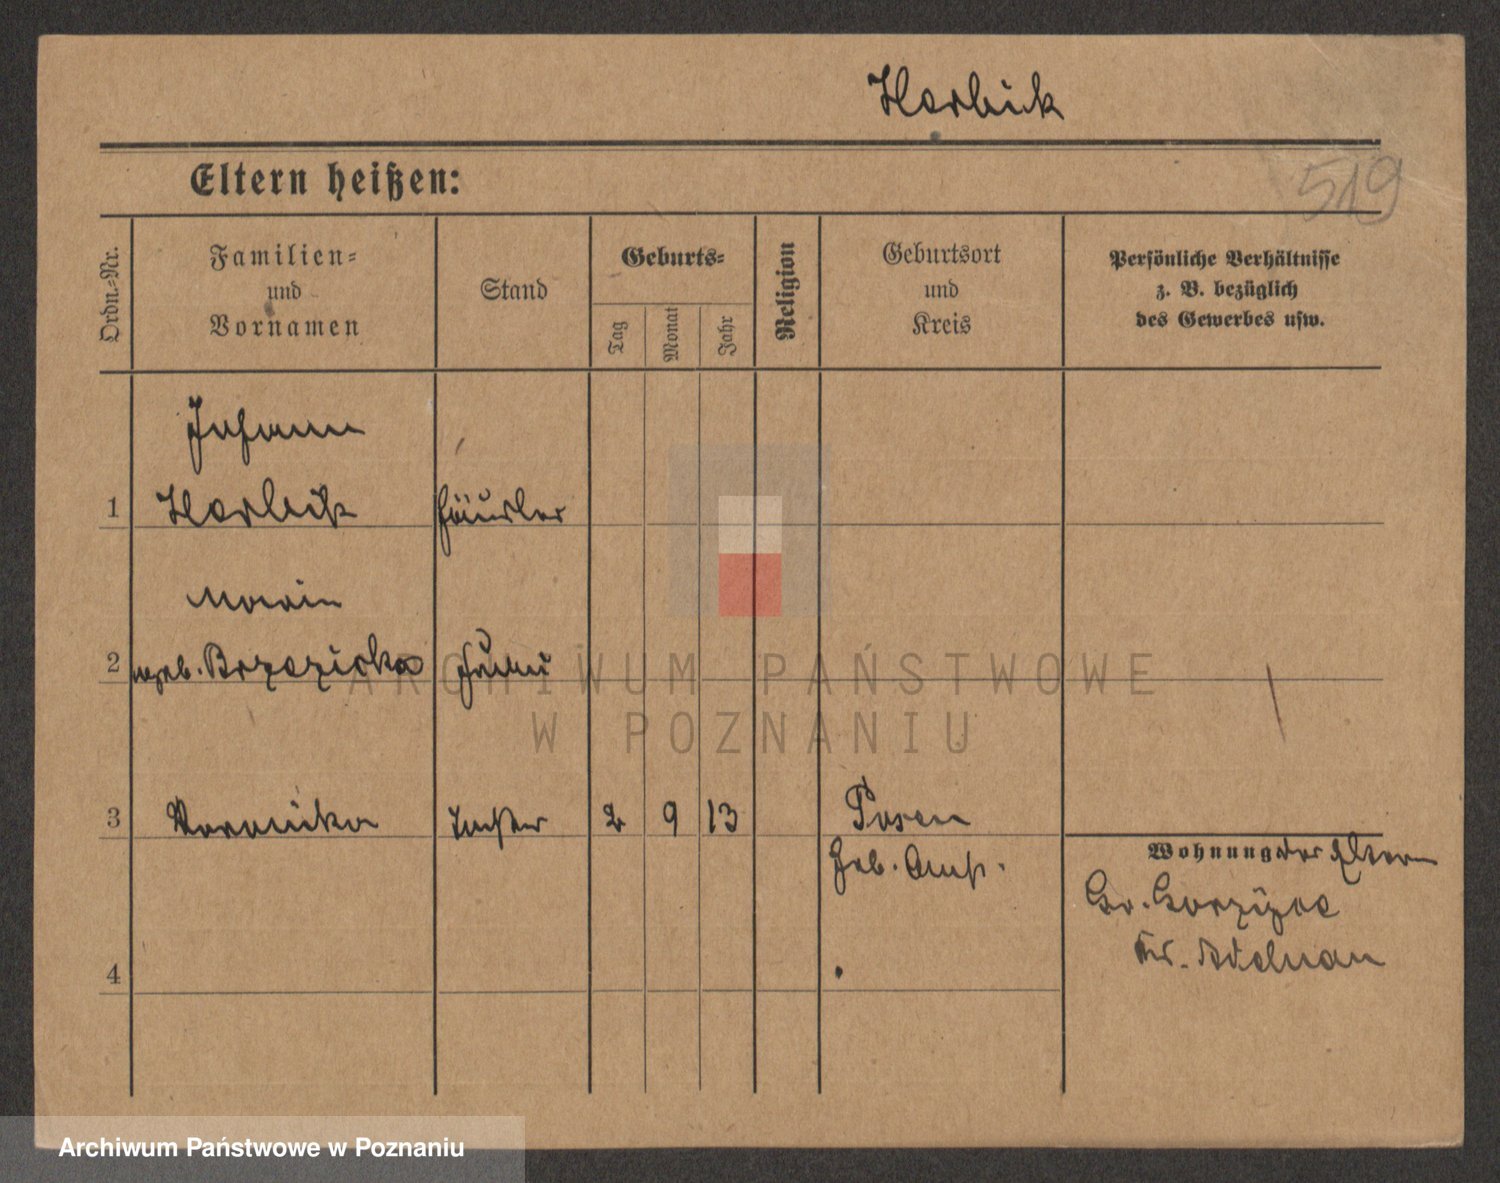 Horbik
519
Eltern heißen:
Ordn.-Nr.
Familien-
und
Vornamen
Stand
Geburts-
Tag
Monat
Jahr
Religion
Geburtsort
und
Kreis
Persönliche Verhältnisse
z. B. bezüglich
des Gewerbes usw.
Johann
1 Horbik Häusler
Maria
2 geb. Brzeziska
3 Veronika Tochter 2 9 13 Posen
Geb. Anst.
Wohnung der Eltern
Gr. Gorzyce
Kr. Adelnau
4
ARCHIWUM PAŃSTWOWE
W POZNANIU
Archiwum Państwowe w Poznaniu